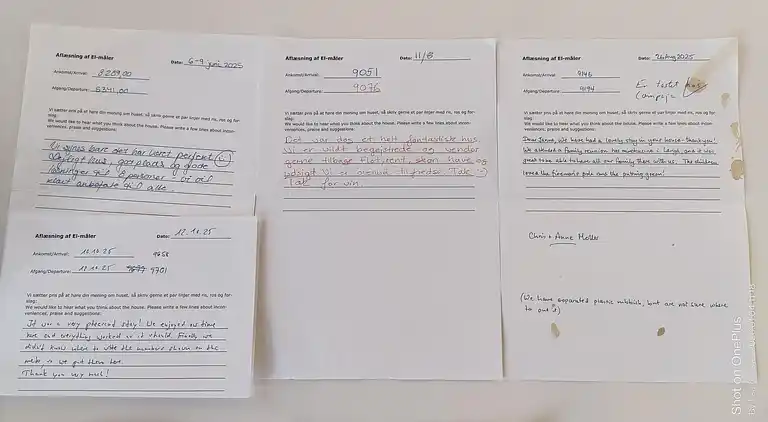 Aflæsning af El-måler
Dato: 6-9 juni 2025
Ankomst/Arrival: 8289,00
Afgang/Departure: 8341,00
Vi sætter pris på at høre din mening om huset, så skriv gerne et par linjer med ris, ros og for-
slag:
We would like to hear what you think about the house. Please write a few lines about incon-
veniences, praise and suggestions:
Vi synes bare det har været perfekt
dejligt hus, god plads og gode
løsninger til 8 personer - vi vil
klart anbefale til alle.
Aflæsning af El-måler
Dato: 12.10.25
Ankomst/Arrival: 9658
Afgang/Departure: 9701
Vi sætter pris på at høre din mening om huset, så skriv gerne et par linjer med ris, ros og for-
slag:
We would like to hear what you think about the house. Please write a few lines about incon-
veniences, praise and suggestions:
It was a very pleasant stay! We enjoyed our time
here and everything worked as it should. Finally we
didn't know where to write the numbers shown on the
meter so we put them here.
Thank you very much!
Aflæsning af El-måler
Dato: 11/8
Ankomst/Arrival: 9051
Afgang/Departure: 9076
Vi sætter pris på at høre din mening om huset, så skriv gerne et par linjer med ris, ros og for-
slag:
We would like to hear what you think about the house. Please write a few lines about incon-
veniences, praise and suggestions:
Det var dog et helt fantastiske hus
Vi er vildt begejstrede og vender
gerne tilbage. Flot, rent, skøn have og
udsigt. Vi er ovenud tilfredse. Tak :-)
Tak for vin
Aflæsning af El-måler
Dato: 26 Aug 2025
Ankomst/Arrival: 9146
Afgang/Departure: 9194
Vi sætter pris på at høre din mening om huset, så skriv gerne et par linjer med ris, ros og for-
slag:
We would like to hear what you think about the house. Please write a few lines about incon-
veniences, praise and suggestions:
we have had a lovely stay in your house - thank you!
We attended a family reunion and it was
great to be able to have all our family there with us. The children
loved the fireman's pole and the putting green!
Chris + Anne Møller
(We have separated plastic rubbish, but are not sure where
to put it)
Shot on OnePlus